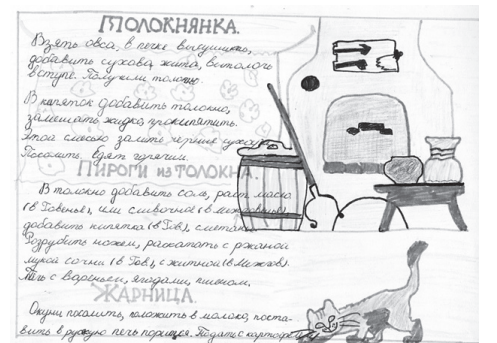 ТОЛОКНЯНКА.
Взять овса, в печке высушить,
добавить сухова жита, вытолочь
в ступе. Получили толокно.
В кипяток добавить толокно,
замешать жидко, прокипятить.
Этой смесью залить черные сухари.
Посолить. Едят горячим.
ПИРОГИ ИЗ ТОЛОКНА.
В толокно добавить соль, раст. масло
(в Говенье), или сливочное (в межговенье)
добавить кипятка (в Гов), сметаны
ножем, раскатать с ржаной
мукой сочни (в Гов), с житной (в Межгов).
Печь с вареньем, ягодами, пшеном,
ЖАРНИЦА.
Окуни посолить, положить в молоко, поста-
вить в русскую печь париться. Подать с картофелем